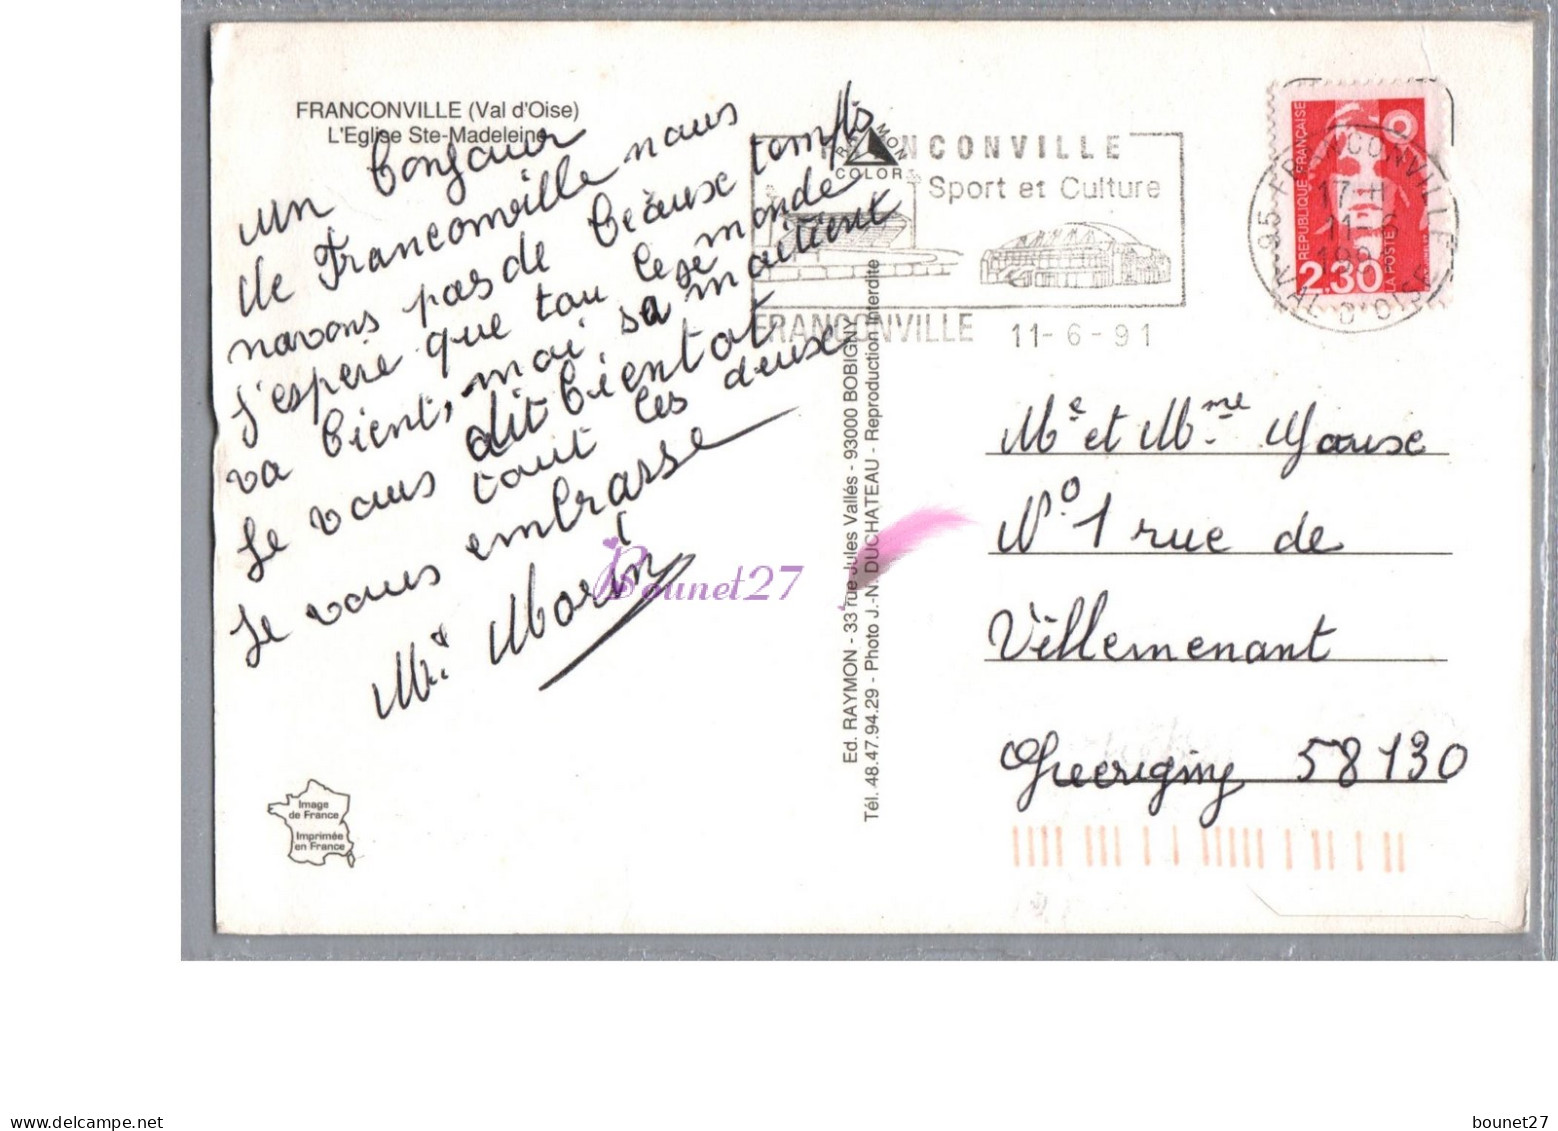 FRANCONVILLE (Val d'Oise)
L'Eglise Ste-Madeleine
un bonjour
de Franconville nous
navons pas de beause temps
J'espère que tou le monde
va bient, moi sa se maitient
Je vous dit bientot
tout les deuse
Je vous embrasse
Morin
RAYMON
COLOR
FRANCONVILLE
Sport et Culture
FRANCONVILLE 11-6-91
RÉPUBLIQUE FRANÇAISE
LA POSTE
2,30
95 FRANCONVILLE
17-H
11-6
VAL D'OISE
Ed. RAYMON - 33 rue Jules Vallés - 93000 BOBIGNY
Tél. 48.47.94.29 - Photo J.-N. DUCHATEAU - Reproduction Interdite
Me et Mme
N° 1 rue de
Villemenant
Guerigny 58130
Image
de France
Imprimée
en France
Bounet27
Delcampe.net
bounet27